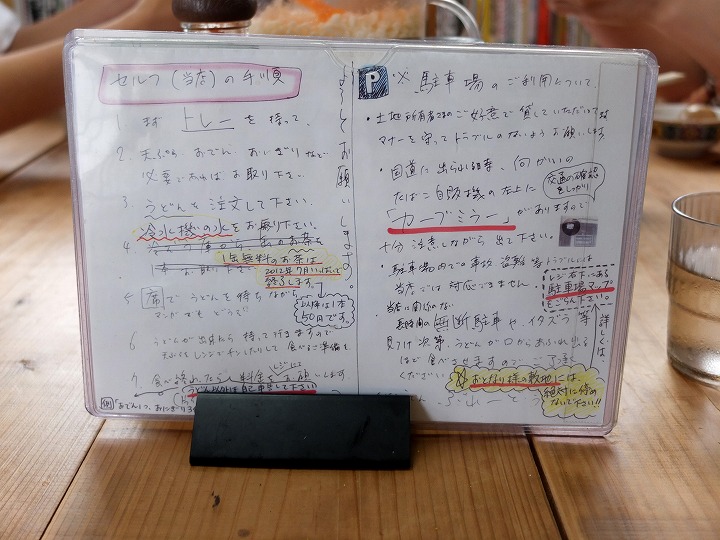 セルフ(当店)の手順
1 まず トレーを持って、
2. 天ぷら、おでん、おにぎりなど
必要であればお取り下さい。
3. うどんを注文して下さい。
冷水機の水をお取り下さい。
4.
1缶無料のお茶は
2012年7月いっぱいで
終了します。
以降は1本
50円です。
5 席でうどんを待ちながら
マンガでもどうぞ
6 うどんが出来たら持って行きますので
天ぷらをレンジでチンしたりして食べるご準備を
7. 食べ終わったら料金をお願いします
レジにて
うどん以外は自己申告して下さい
例
よろしくお願いします。
P ※ 駐車場のご利用について、
・土地所有者様のご好意で貸していただいてます
マナーを守ってトラブルのないようお願いします
・国道に出られる時、向かいの
たばこ自販機の左上に
交通の確認
をしっかり
「カーブミラー」がありますので
十分注意しながら出て下さい。
・駐車場内での事故、盗難等トラブルには
当店では対応できません。
レジ右下にある
駐車場マップ
をごらん下さい。
詳しくは
当店に関係のない
長時間の無断駐車や、イタズラ等
見つけ次第、うどんが口からあふれ出る
ほど食べさせますのでご了承
ください
おとなり様の敷地には
絶対に停め
ないで下さい!!